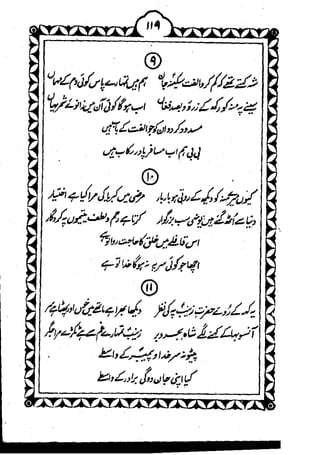 ۱۱۹
۹
شہ کہتے تھے کہ کم کرو الفت سکینہ جاں
ہم ہیں تمہارے پاس کوئی دم کے میہماں
سینے پہ منہ کو رکھ کے نہ رو بعد فغاں
اب ہوگا کوئی آن میں زانوئے شمر یہاں
مسدود کردو ان کو جو الفت کے باتیں ہیں
بی بی ہم اب مسافر پا در رکاب ہیں
۱۰
کیوں میرے منہ کو دیکھ کے روتی ہو بار بار
مرضی میں کبریا کی مرا کیا ہے اختیار
دنیا سے اُٹھ گئے ہیں یونہی سب بزرگوار
کرتا ہے رحم و لطف یتیموں پہ کردگار
اس قافلے میں خلق کا حاجت روا تو ہے
اچھا جو کوئی سر پہ نہ ہوگا خدا تو ہے
۱۱
یہ کہہ کے روئے حضرت زینبؑ پہ کی نظر
دیکھا بھرا ہے
آنسو بہا کے کہنے لگے شاہ بحر و بر
زینبؑ تمہارے غم سے ہے ٹکڑے مرا جگر
پیٹو نہ سر خدا و پیمبرؐ کے واسطے
کیا اپنی جان دوگی برادر کے واسطے